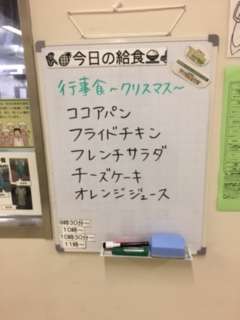 今日の給食
行事食～クリスマス～
ココアパン
フライドチキン
フレンチサラダ
チーズケーキ
オレンジジュース
9時30分～
10時～
10時30分～
11時～